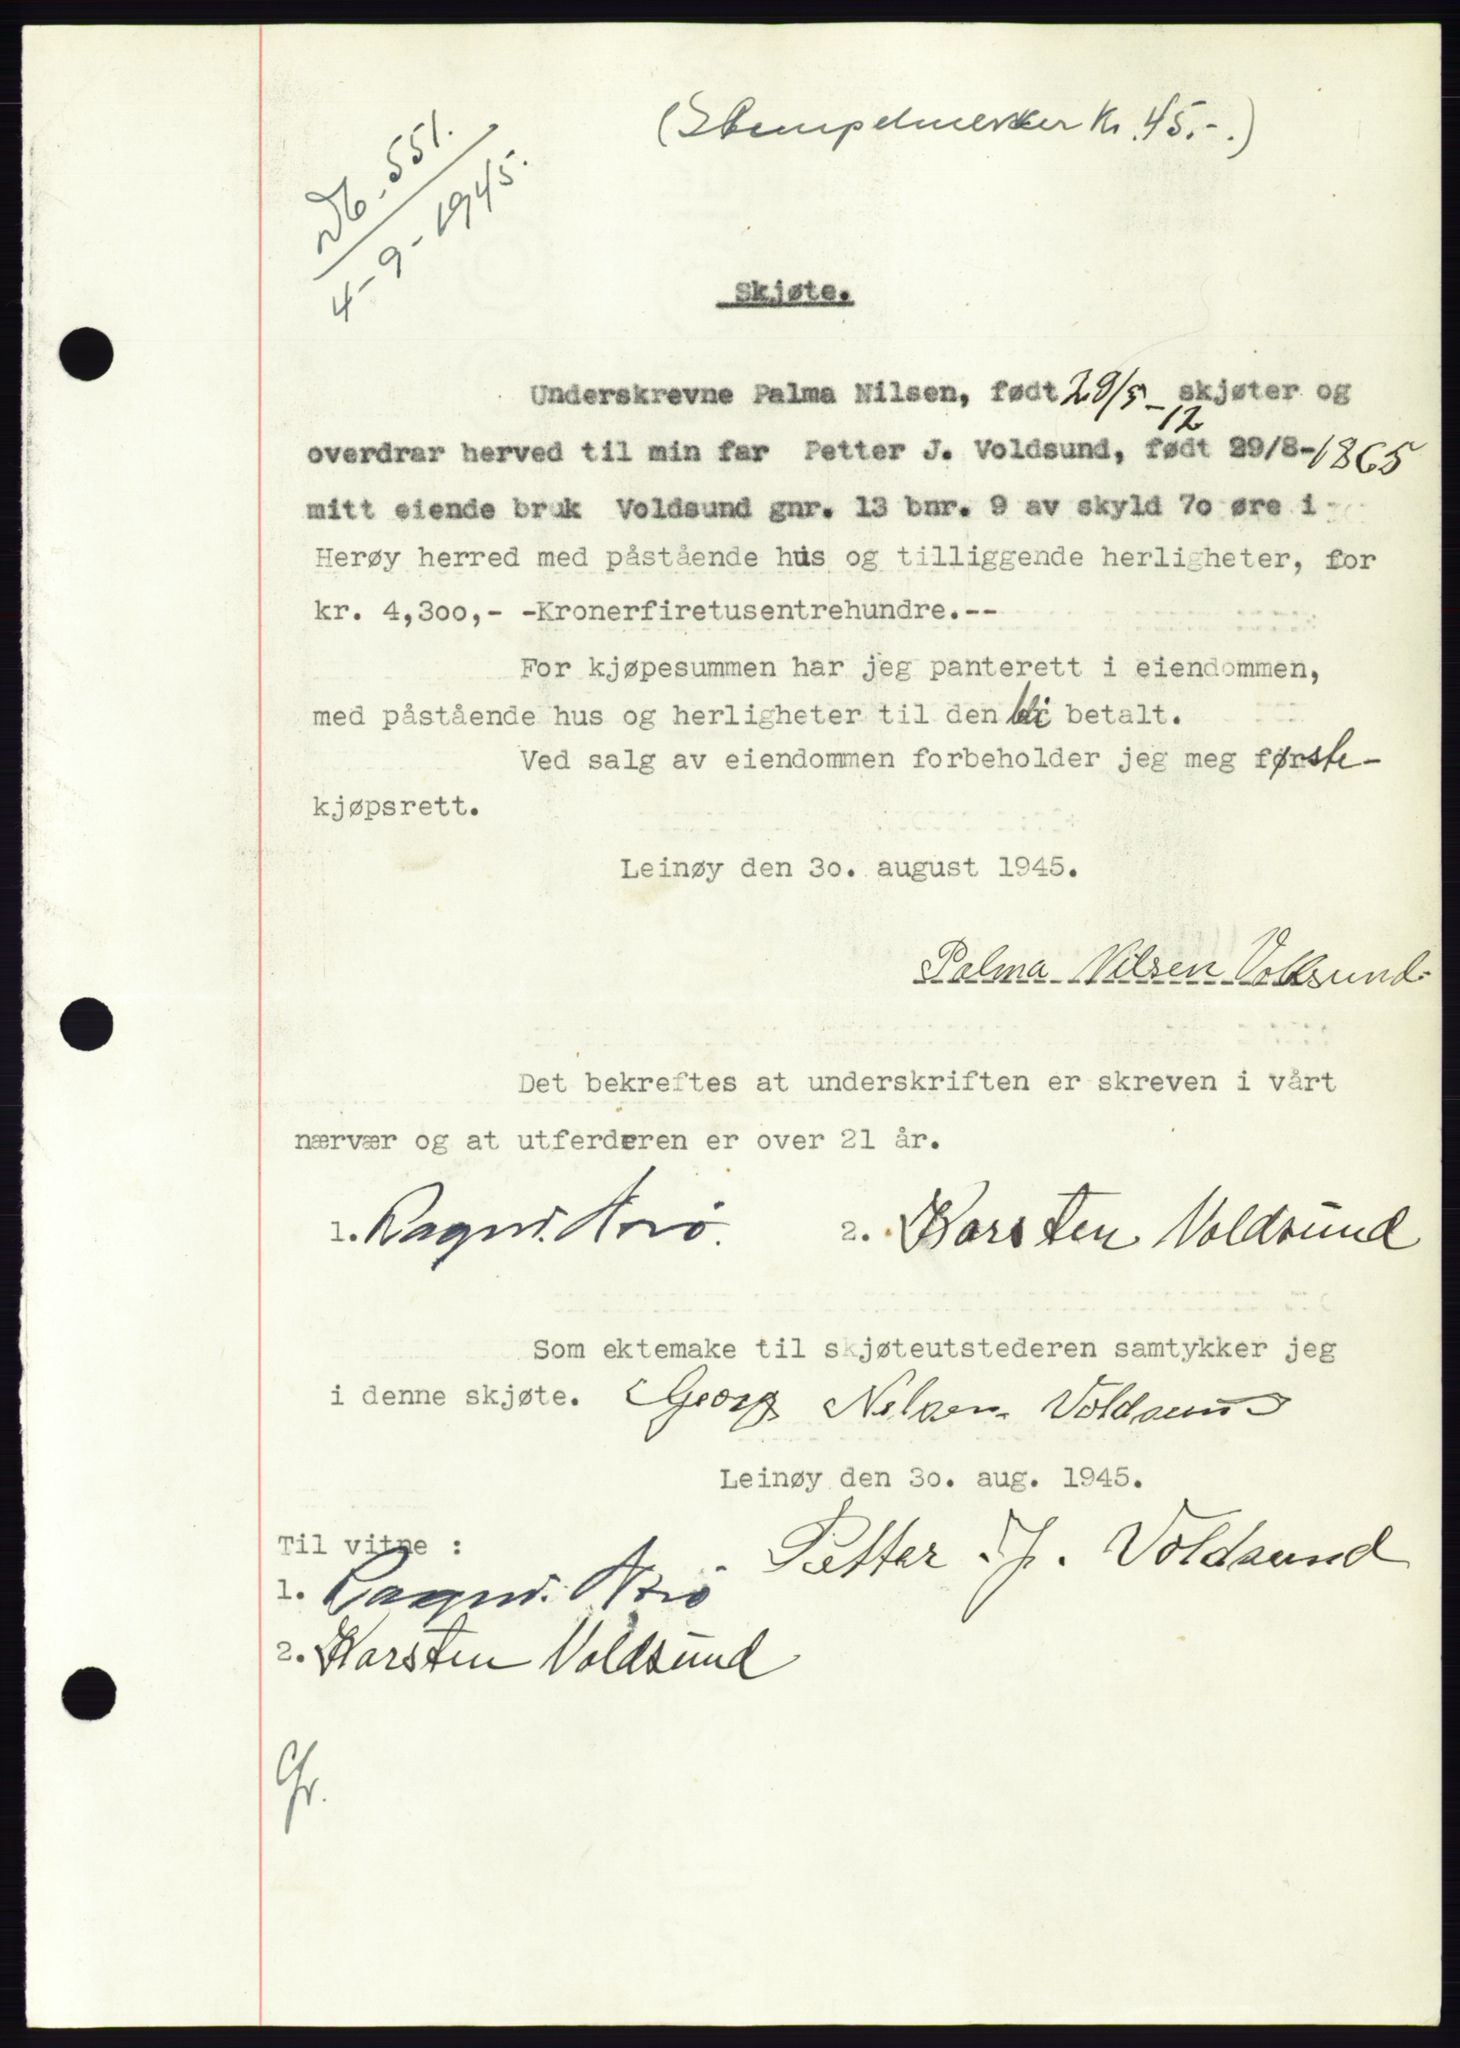 (Stempelmerker kr. 45.-.)
Nb. 551.
4-9-1945.
Skjøte.
Underskrevne Palma Nilsen, født 29/5-12 skjøter og
overdrar herved til min far Petter J. Voldsund, født 29/8-1865
mitt eiende bruk Voldsund gnr. 13 bnr. 9 av skyld 7o øre i
Herøy herred med påstående hus og tilliggende herligheter, for
kr. 4,3oo,- -Kronerfiretusentrehundre.--
For kjøpesummen har jeg panterett i eiendommen,
med påstående hus og herligheter til den bli betalt.
Ved salg av eiendommen forbeholder jeg meg første-
kjøpsrett.
Leinøy den 3o. august 1945.
Palma Nilsen Voldsund
Det bekreftes at underskriften er skreven i vårt
nærvær og at utferderen er over 21 år.
1. Ragnv. 2. Karsten Voldsund
Som ektemake til skjøteutstederen samtykker jeg
i denne skjøte. Georg Nilsen Voldsund
Leinøy den 3o. aug. 1945.
Petter J. Voldsund
Til vitne :
1. Ragnv.
2. Karsten Voldsund